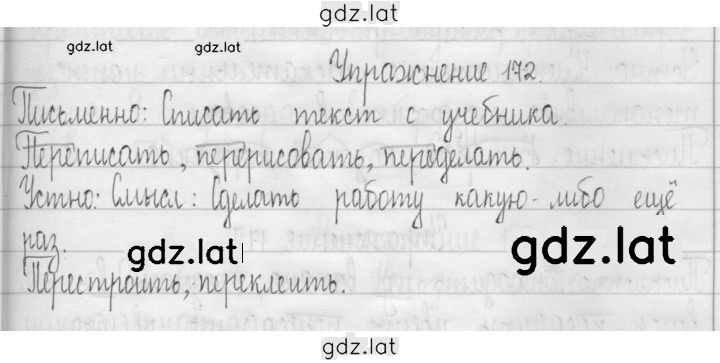 gdz.lat
gdz.lat gdz.lat
Упражнение 172.
Письменно: Списать текст с учебника.
Переписать, перерисовать, переделать.
Устно: Смысл: Сделать работу какую-либо ещё
раз.
gdz.lat gdz.lat
Перестроить, переклеить.
gdz.lat